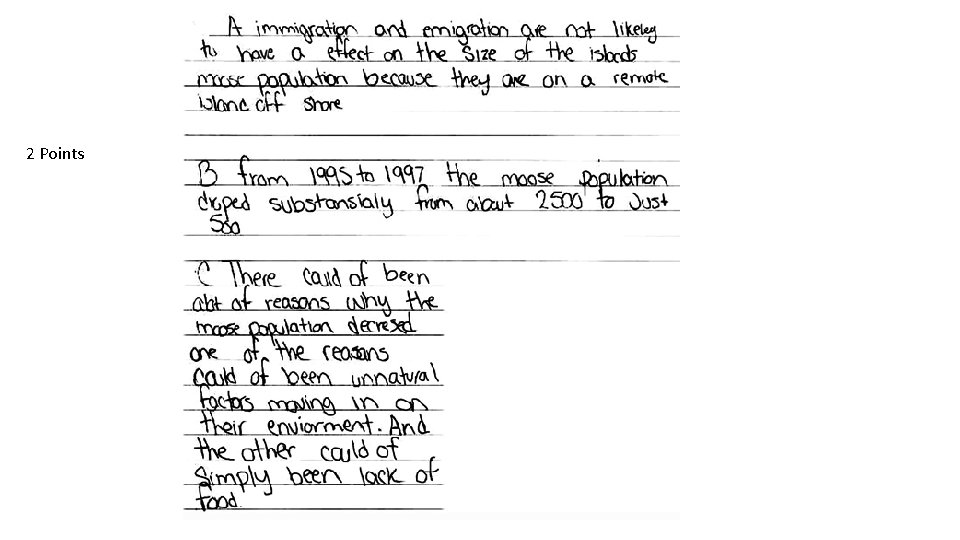 A immigration and emigration are not likeley
to have a effect on the size of the islands
moose population because they are on a remote
island off shore
2 Points
B from 1995 to 1997 the moose population
droped substansialy from about 2500 to Just
500
C There could of been
alot of reasons why the
moose population decresed
one of the reasons
could of been unnatural
factors moving in on
their enviorment. And
the other could of
simply been lack of
food.